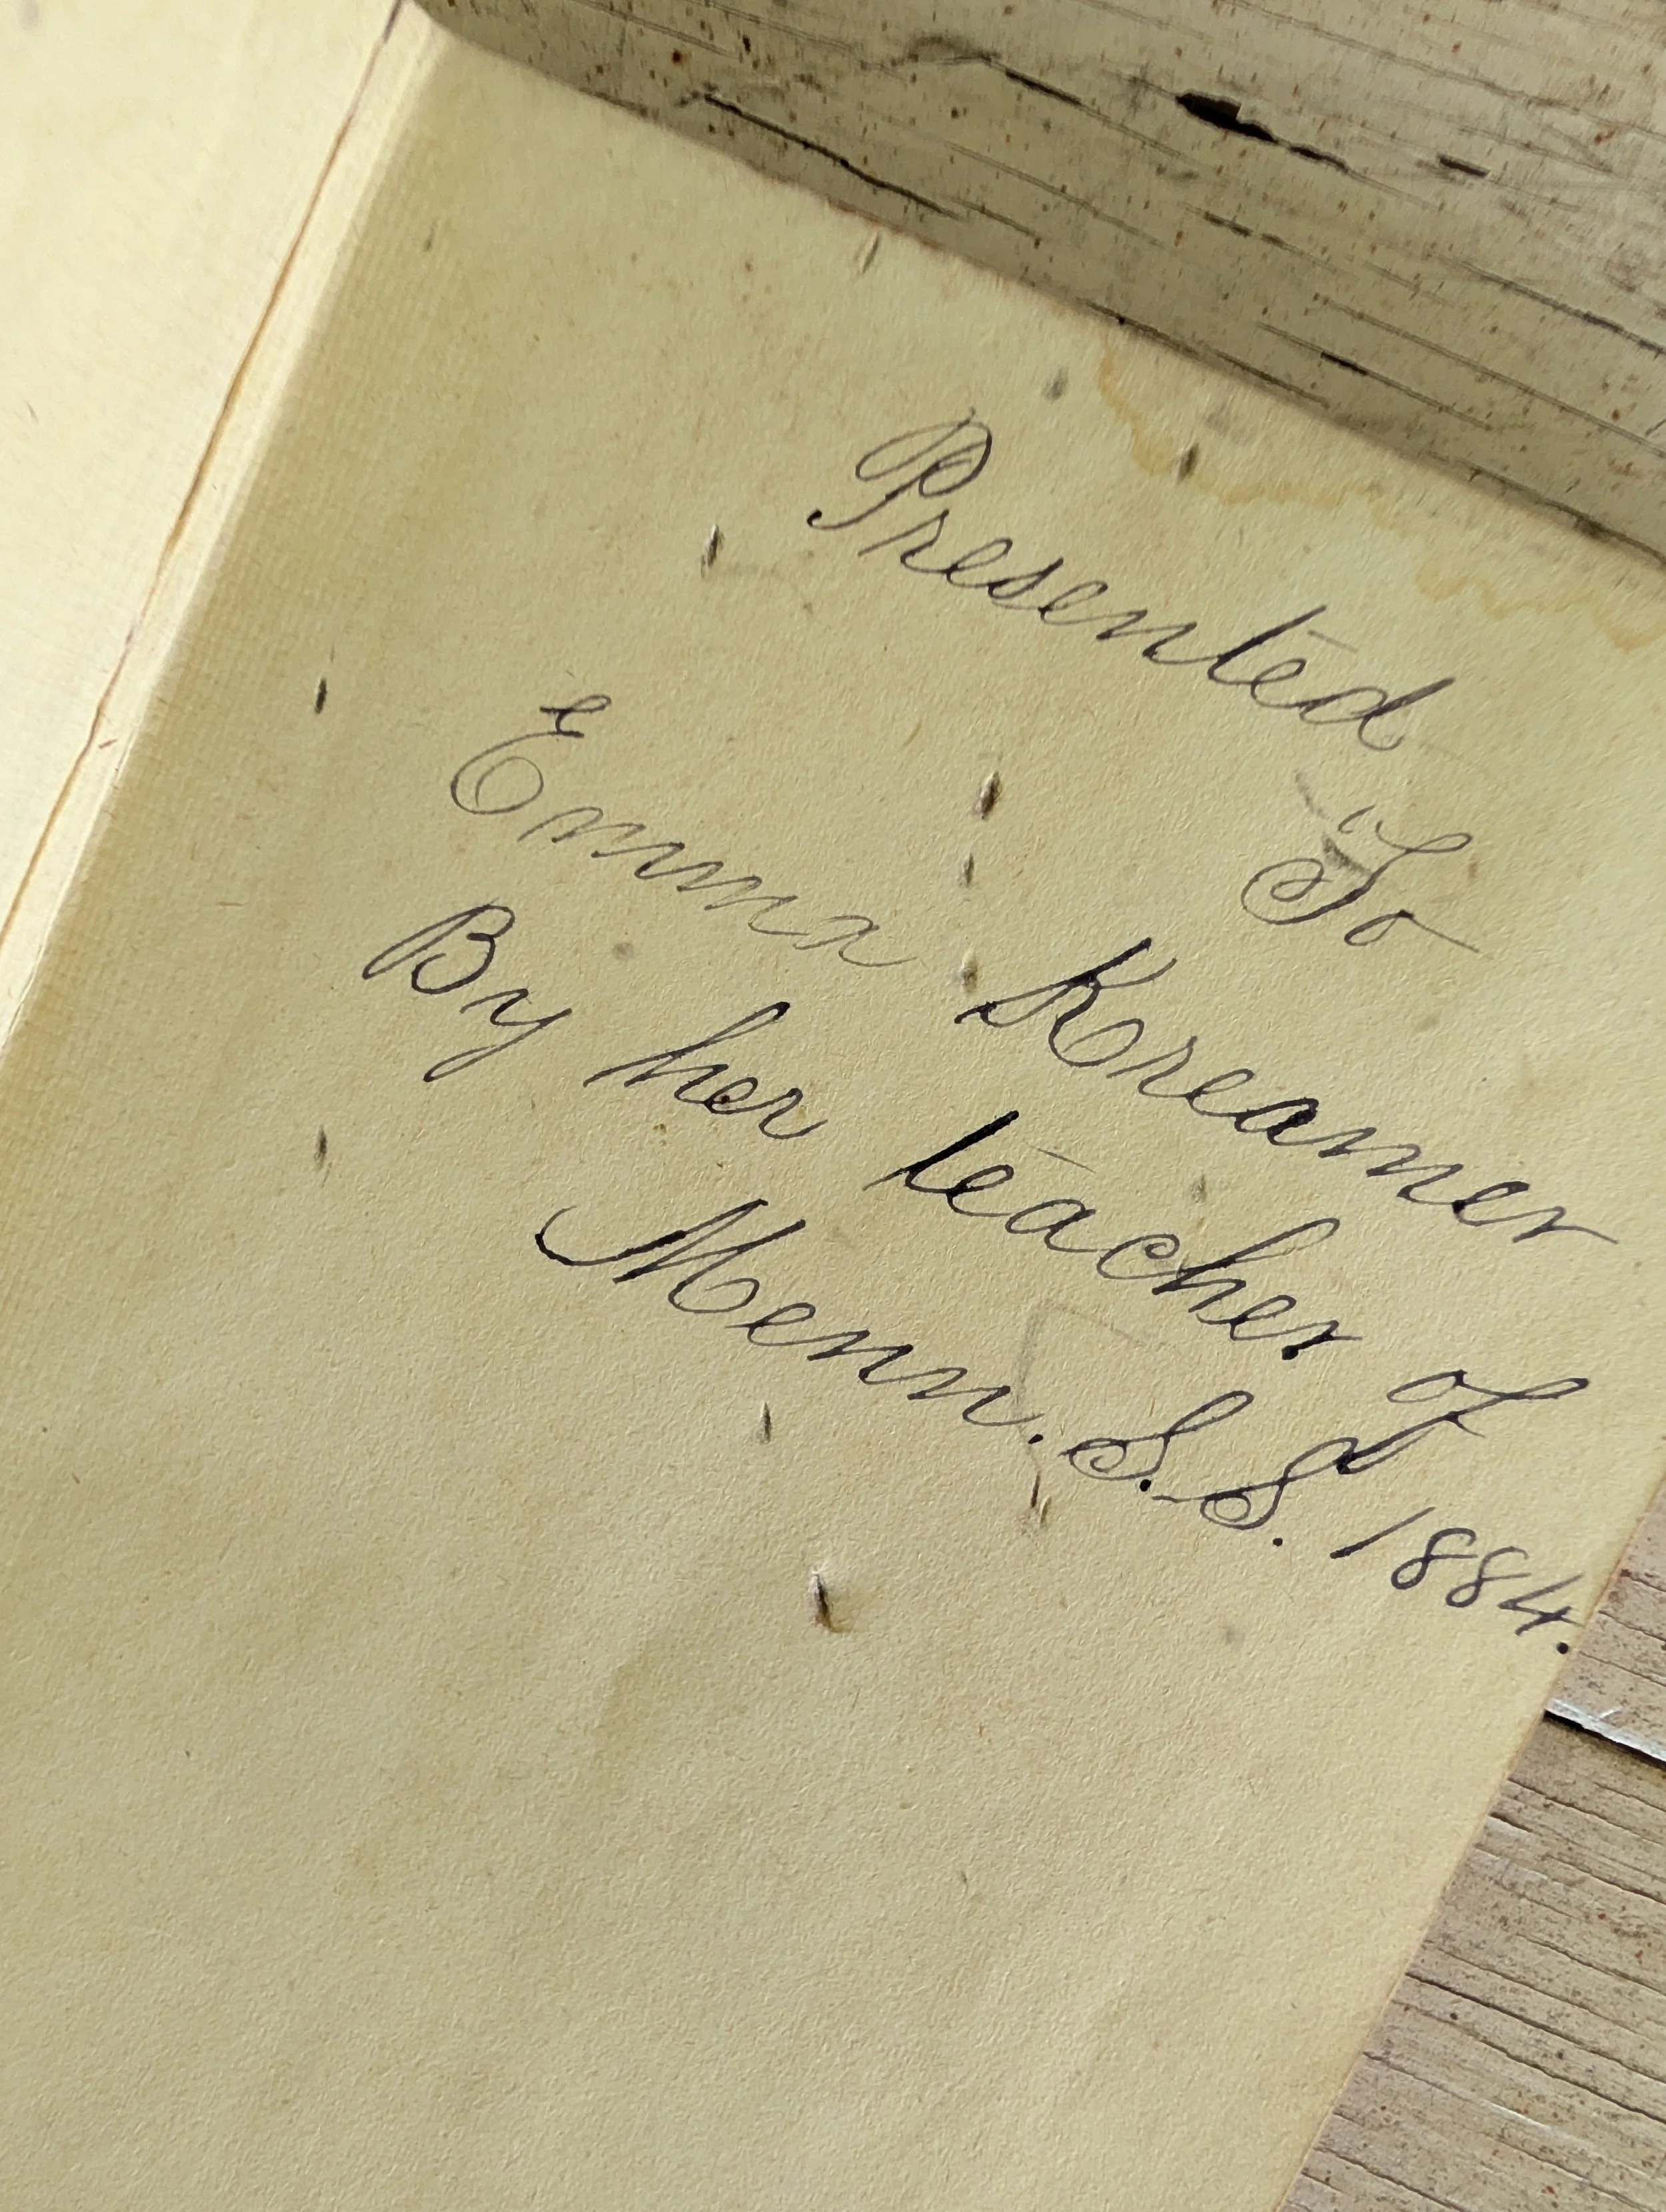 Presented
To
Emma Kreamer
By her teacher of
Menn. S. S. 1884.